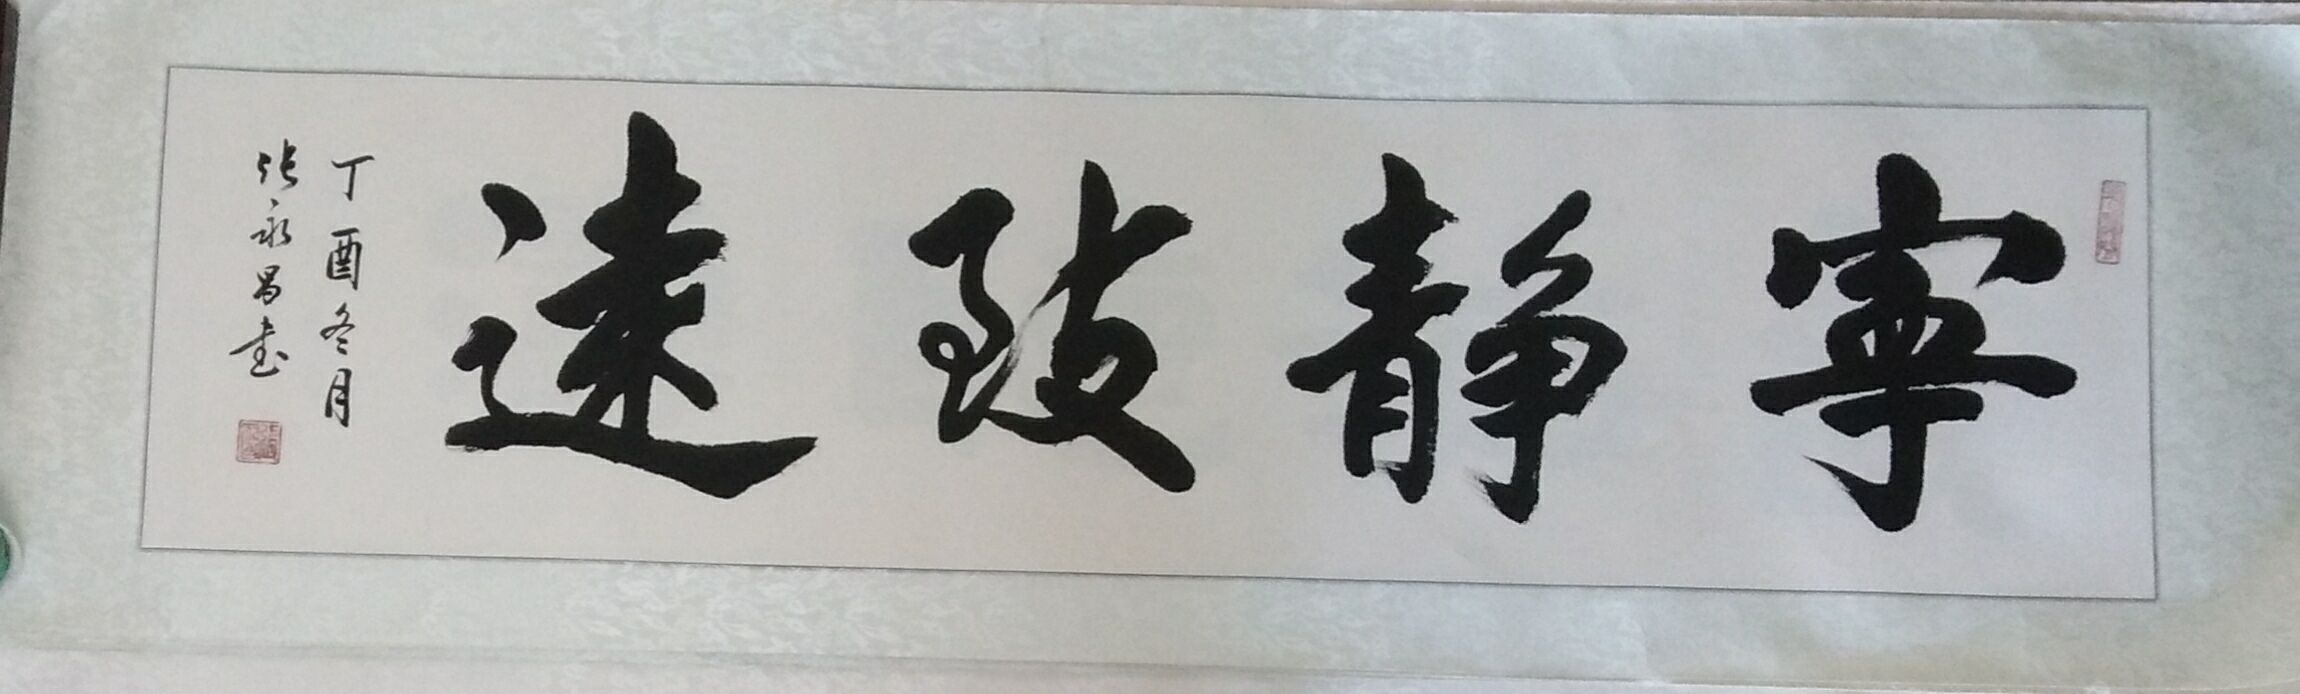 寧靜致遠
丁酉冬月
張永昌书